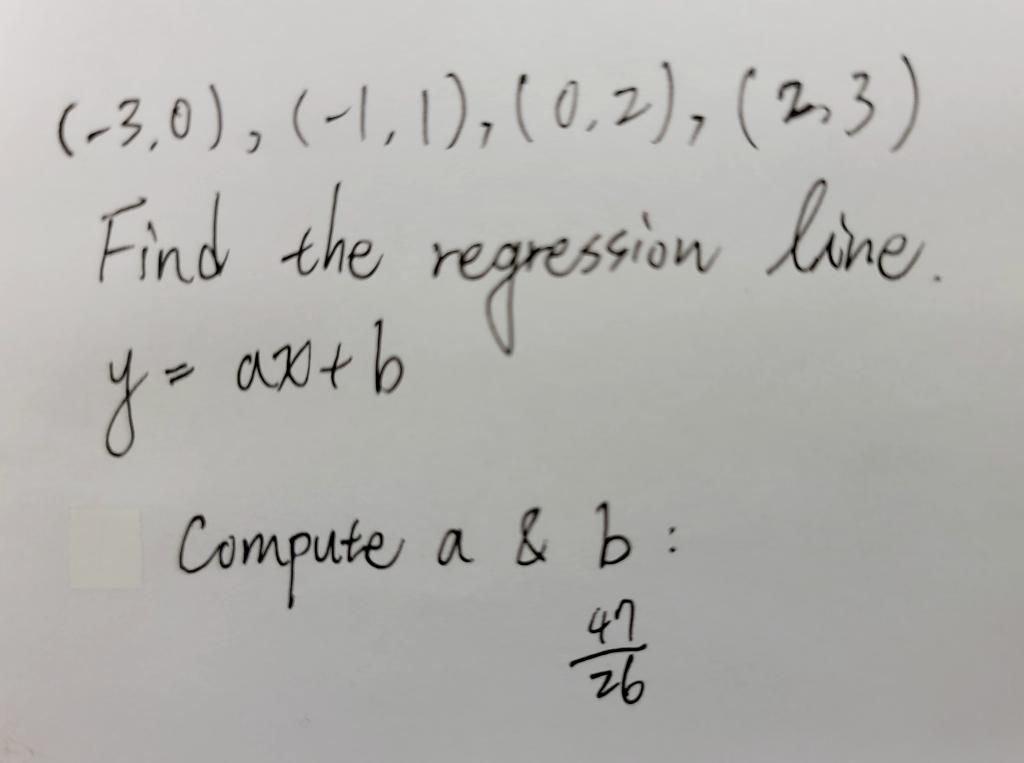 (-3,0), (-1,1), (0,2), (2,3)
Find the regression line.
y = ax+b
Compute a & b :
47
26